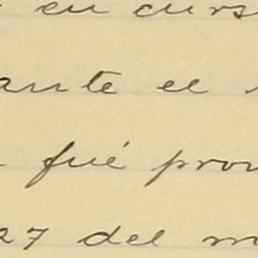 en curs
ante el
fué prov
27 del m